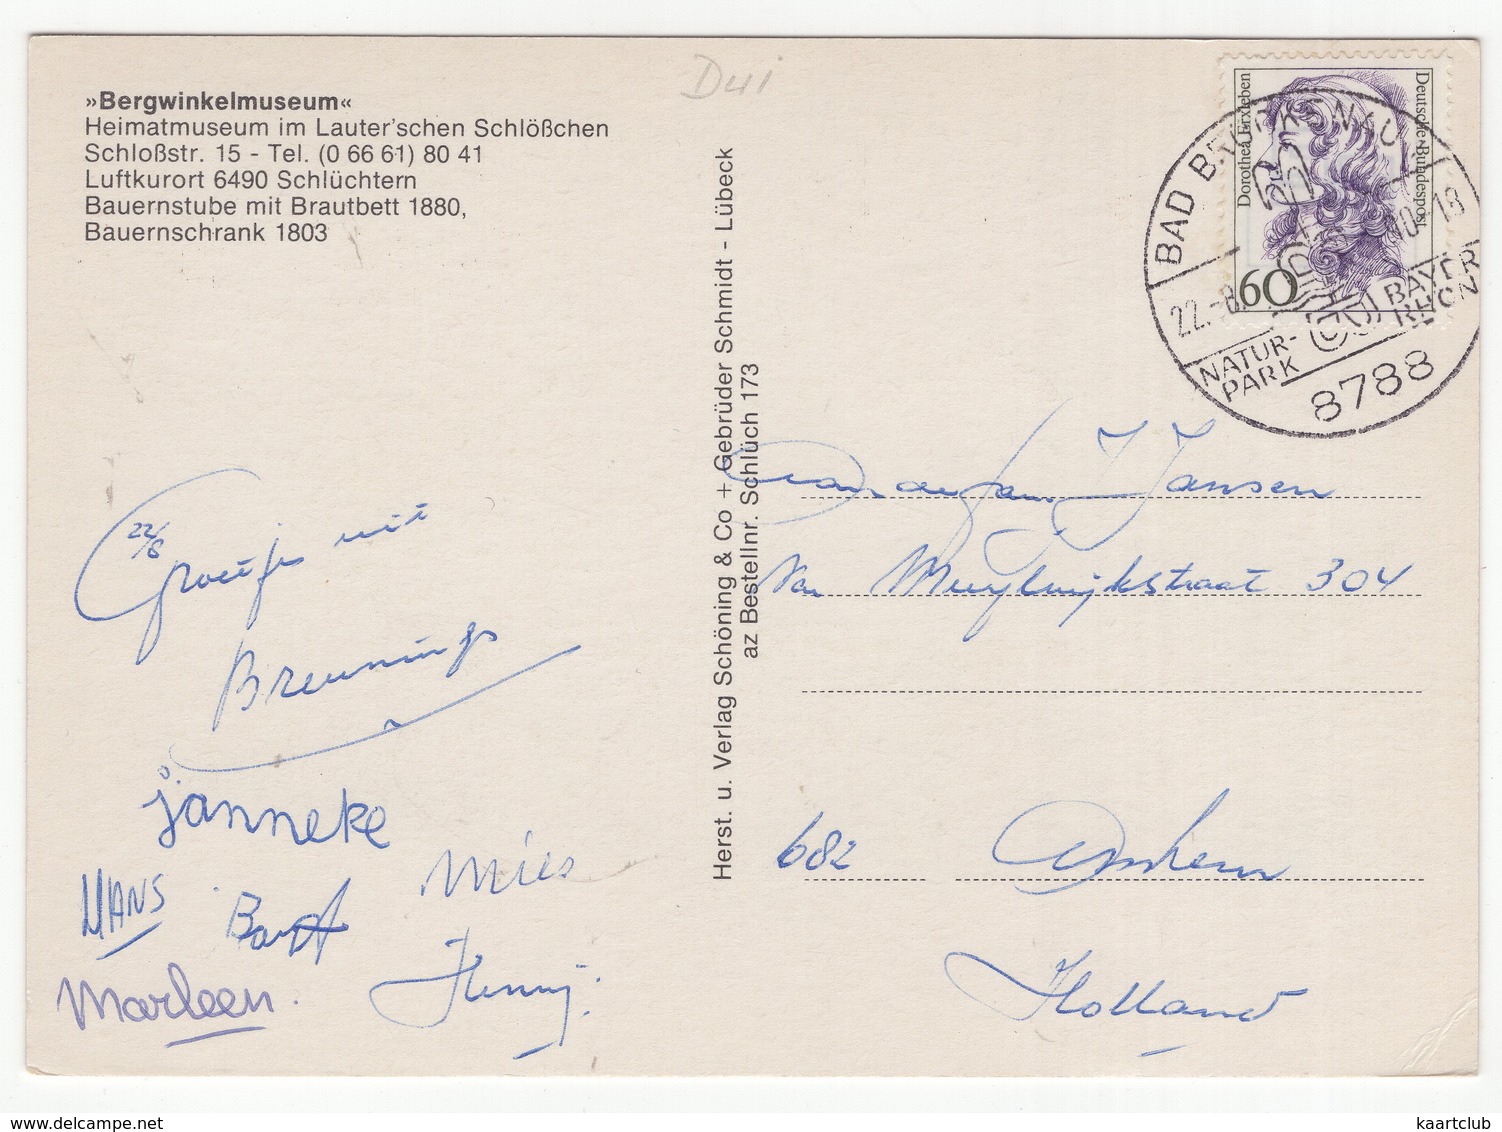 »Bergwinkelmuseum«
Heimatmuseum im Lauter'schen Schlößchen
Schloßstr. 15 - Tel. (0 66 61) 80 41
Luftkurort 6490 Schlüchtern
Bauernstube mit Brautbett 1880,
Bauernschrank 1803
Dui
Herst. u. Verlag Schöning & Co + Gebrüder Schmidt - Lübeck
az Bestellnr. Schlüch 173
Dorothea Erxleben
Deutsche Bundespost
60
BAD BRÜCKENAU
22.-8.
-18
NATUR-
PARK
BAYER
RHÖN
8788
22/8
Groetjes uit
Breunings
janneke
HANS
Bart
Mies
Marleen.
Henny.
fam. J Jansen
Van Muylwijkstraat 304
682 Arnhem
Holland
kaartclub
www.delcampe.net